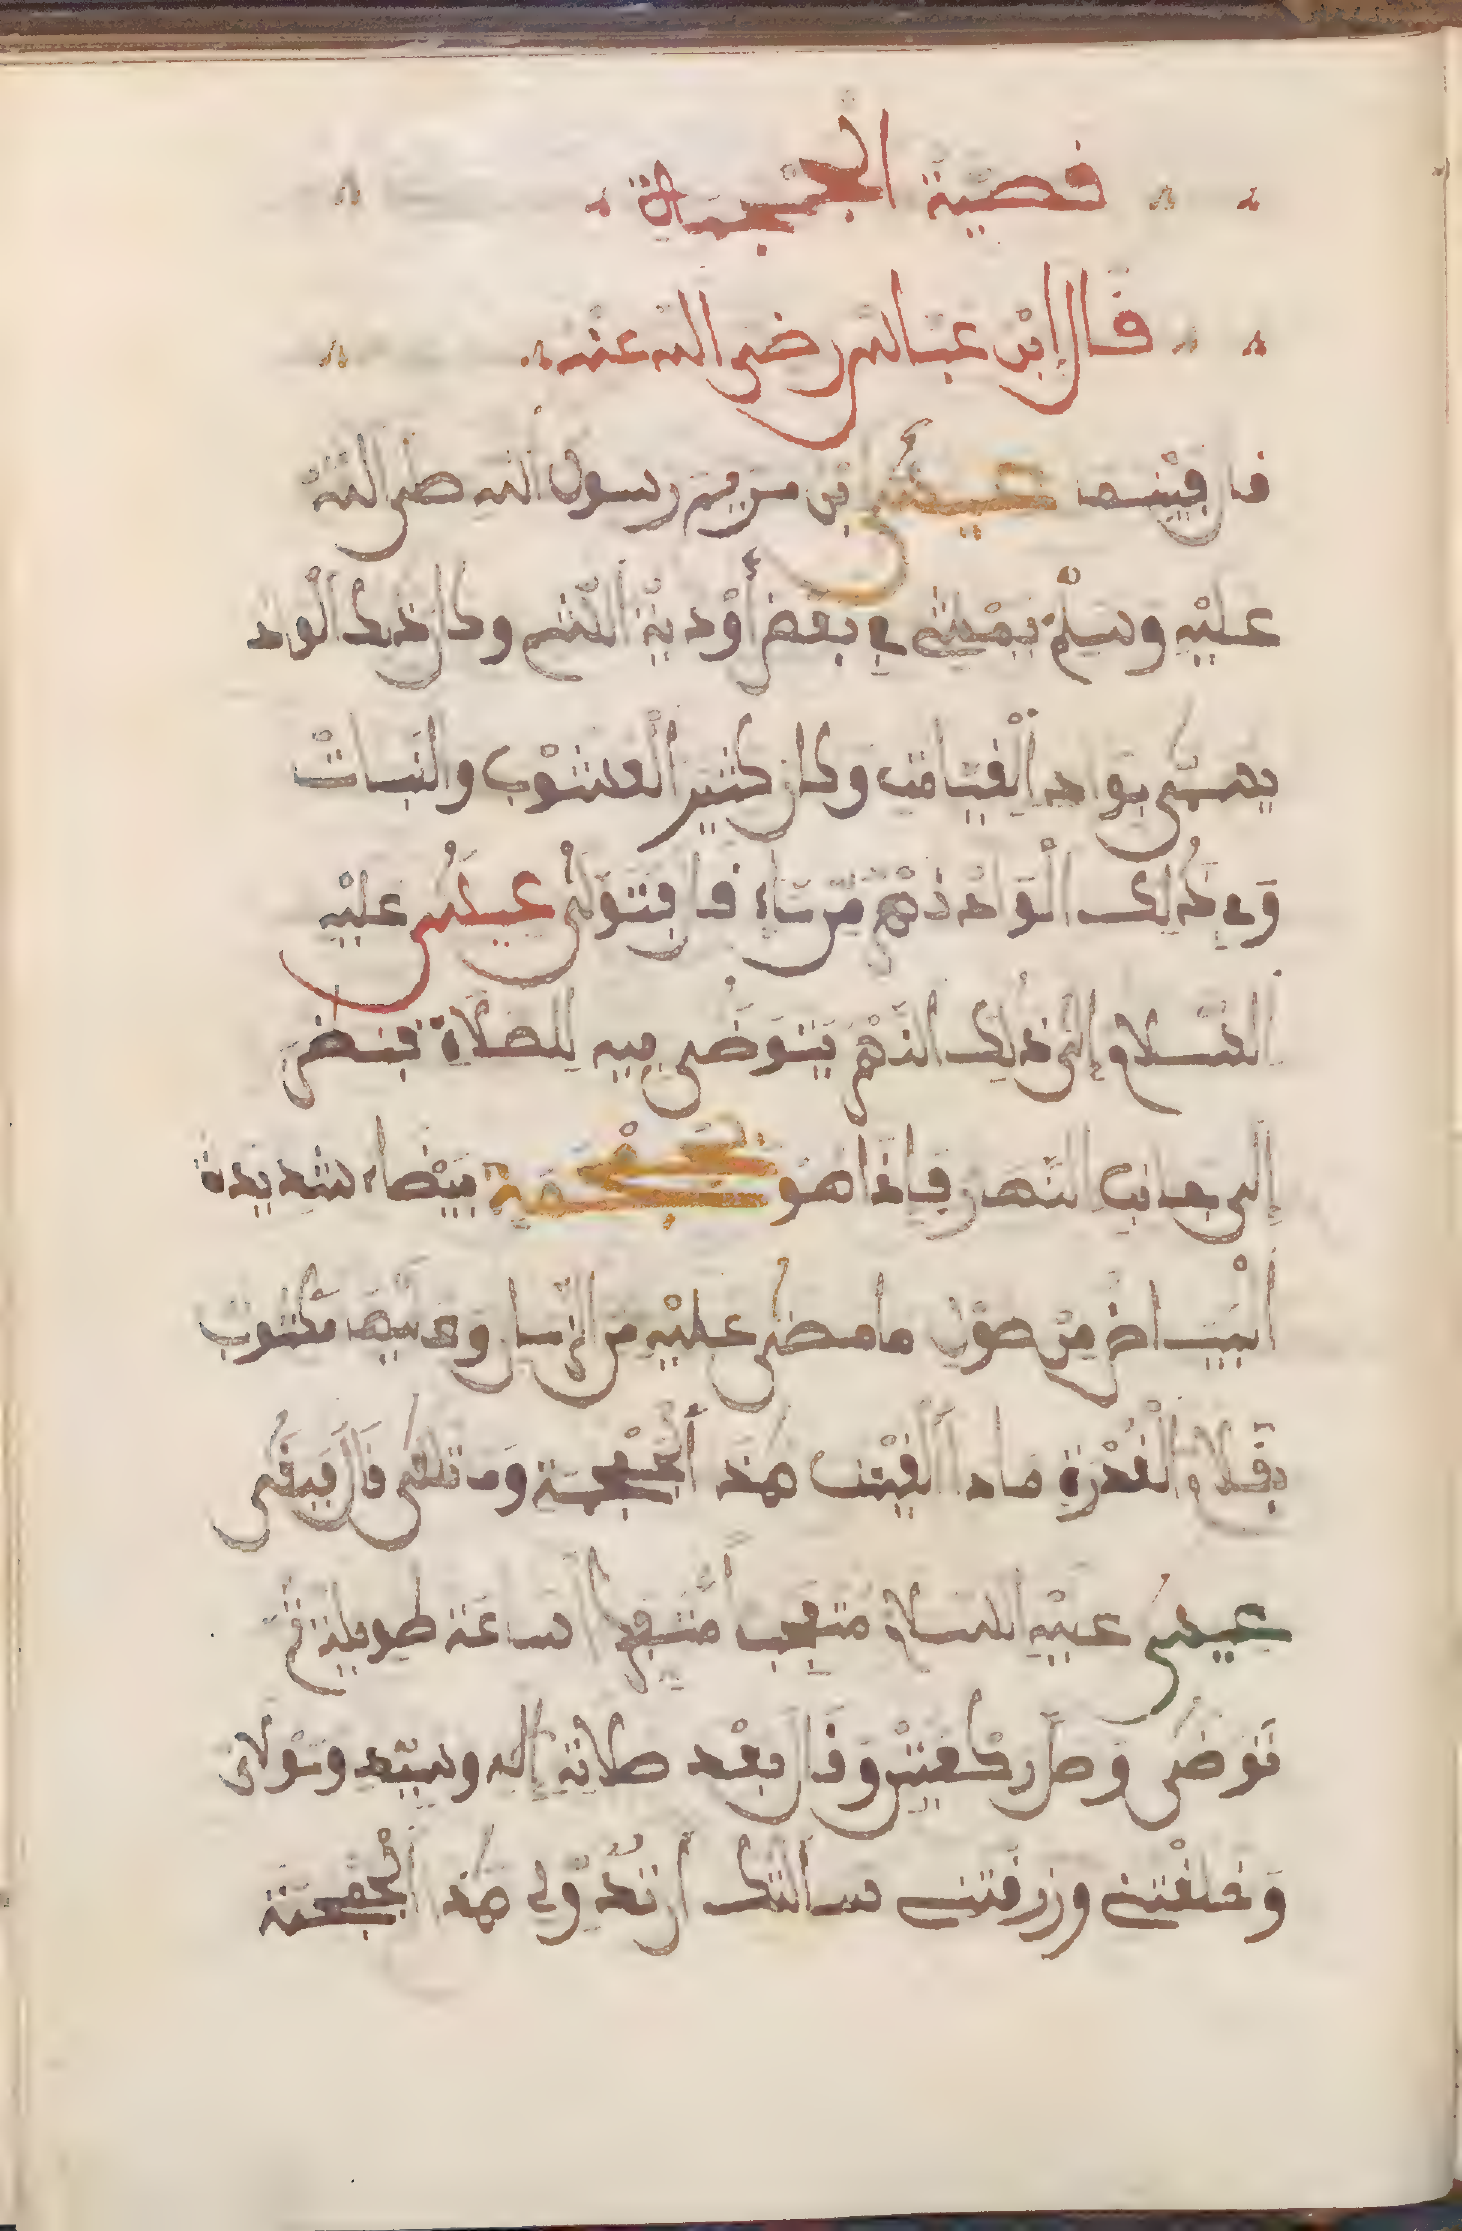 قصية الجمجمة
قال إبن عباس رضى الله عنه
قال فبينما عيسى ابن مريم رسول الله صلى الله
عليه وسلم يمشى في بعض أودية الشم وكان ذلك الواد
يسمى بواد القيامت وكان كثير العشوب والنبات
وفي ذلك الواد نهر من ماء قال فتولى عيسى عليه
السلام إلى ذلك النهر يتوضى فيه للصلاة فنضر
إلى جانب النهر فإذا هو بجمجمة بيضاء شديدة
البياض من طول ما مضى عليه من الزمان وعليها مكتوب
بقلام القدرة مادا لقيت هذ الجمجمة وما تلقى قال فبقى
عيسى عليه السلام متعجب متفكرا ساعة طويلة ثم
توضى وصلى ركعتين وقال بعد صلاته إله وسيد ومولاي
وخلقتني ورزقتني سالتك أن تحدث لي هذ الجمجمة